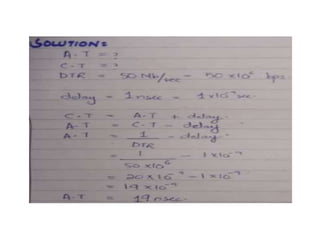 SOLUTION:
A.T = ?
C.T = ?
DTR = 50 Mb/sec = 50 x10⁶ bps.
delay = 1 nsec = 1 x10⁻⁹ sec.
C.T = A.T + delay.
A.T = C.T - delay.
A.T = 1/DTR - delay.
= 1/50 x10⁶ - 1 x10⁻⁹
= 20 x10⁻⁹ - 1 x10⁻⁹
= 19 x10⁻⁹
A.T = 19 nsec.